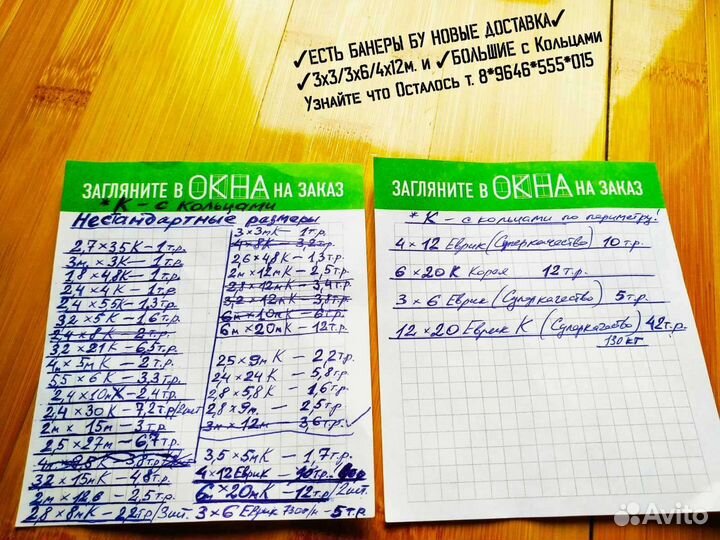 ✓ЕСТЬ БАНЕРЫ БУ НОВЫЕ ДОСТАВКА✓
✓3х3/3х6/4х12м. и ✓БОЛЬШИЕ с Кольцами
Узнайте что Осталось т. 8*9646*555*015
ЗАГЛЯНИТЕ В ОКНА НА ЗАКАЗ
*К - с кольцами
Нестандартные размеры
2,7×3,5К - 1т.р.
3м × 3К - 1т.р.
1,8×4,8К - 1т.р.
2,4×4К - 1т.р.
2,4×5,5К - 1,3т.р.
3,2×5К - 1,6т.р.
2,4×8К - 2т.р.
3,2×21К - 6,5т.р.
4м×5мК - 2т.р.
5,5×6К - 3,3т.р.
2,4×10мК - 2,4т.р.
2,4×30К - 7,2т.р/2шт
2м × 15м - 3т.р.
2,5×27м - 6,7т.р.
3,8т.р.
32×15мК - 4,8т.р.
2м × 12,6 - 2,5т.р.
2,8×8мК - 2,2тр/3шт.
3×3мК - 1т.р.
4×8К - 3,2т.р.
2,6×4,8К - 1,3т.р.
2м×12мК - 2,5т.р.
2,8×12мК - 3,4т.р.
3,2×12мК - 3,8т.р.
6м×10мК - 6т.р.
6м×20мК - 12т.р.
25×9мК - 2,2т.р.
2,4×24К - 5,8т.р.
2,8×5,8К - 1,6т.р.
2,8×9м. - 2,5т.р.
3м×12м - 3,6т.р.
3,5×5мК - 1,7т.р.
4×12Еврик - 10т.р.
6×20мК - 12тр/2шт.
3×6 Еврик - 5т.р.
ЗАГЛЯНИТЕ В ОКНА НА ЗАКАЗ
*К - с кольцами по периметру!
4×12 Еврик (Суперкачество) 10т.р.
6×20К Корея 12т.р.
3×6 Еврик (Суперкачество) 5т.р.
12×20 Еврик К (Суперкачество) 42т.р.
130кг
Avito